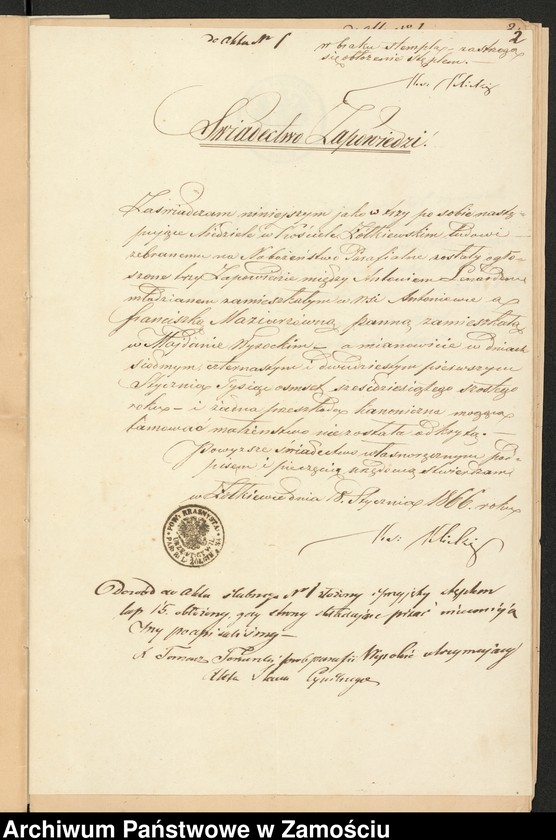 2
do Aktu Nr 1
w braku stempla zastrzega
się obłożenie stęplem.—
Świadectwo Zapowiedzi.
Zaświadczam niniejszym jako w trzy po sobie nastę-
pujące Niedziele w Kościele Żółkiewskim ludowi
zebranemu na Nabożeństwo Parafialne zostały ogło-
szone trzy Zapowiedzie między Antonim
młodzianem zamieszkałym w wsi Antoniewie a
Franciszką Maziarzówną panną zamieszkałą
w Majdanie Wysockim a mianowicie w dniach
siódmym, czternastym i dwudziestym pierwszym
Stycznia Tysiąc ośmset sześćdziesiątego szóstego
roku – i żadna przeszkoda kanoniczna mogąca
tamować małżeństwo nie została odkrytą.
Powyższe świadectwo własnoręcznym pod-
pisem i pieczęcią urzędową stwierdzam
w Żółkiewce dnia Stycznia 1866. roku
Dowód do Aktu ślubnego Nr 1 złożony i przyjęty stęplem
kop 15. obłożony, gdy strony składające pisać nieumieją
My podpisaliśmy—
X Tomasz prob parafii Wysokie utrzymujący
Akta Stanu Cywilnego
Archiwum Państwowe w Zamościu